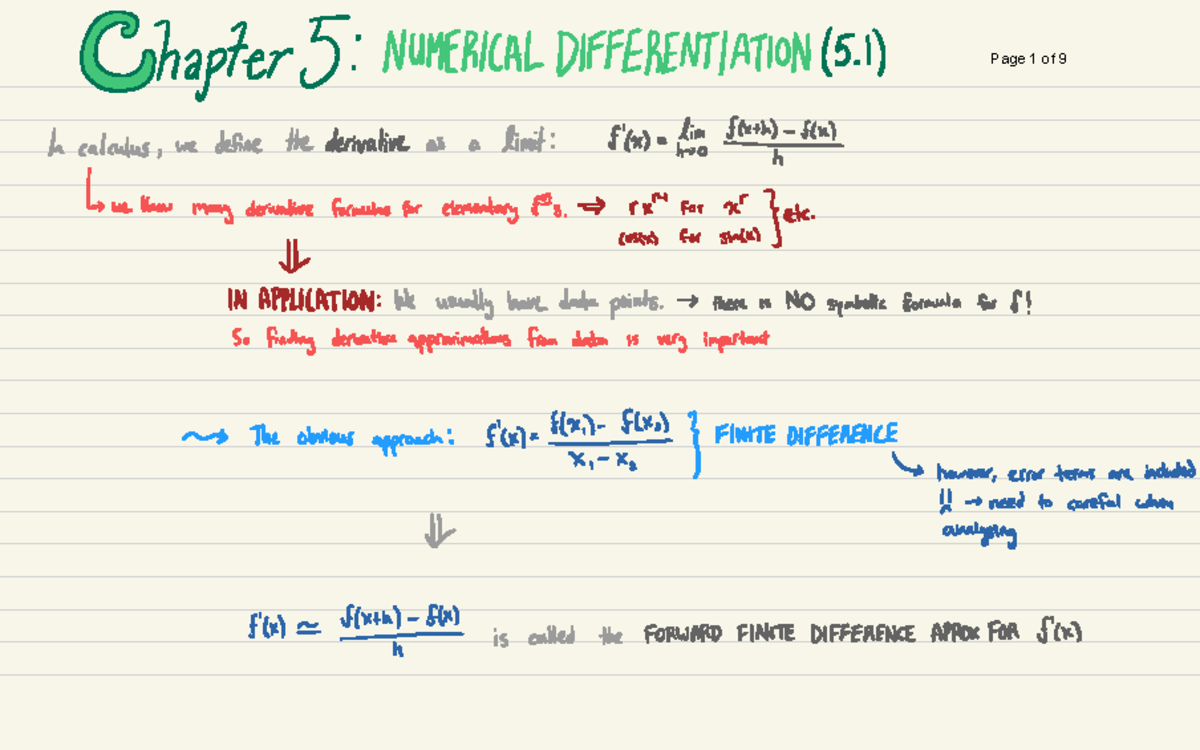 Chapter 5: NUMERICAL DIFFERENTIATION (5.1)
Page 1 of 9
In calculus, we define the derivative as a limit: f'(x) = lim h→0 f(x+h) - f(x) / h
↳ we know many derivative formulas for elementary fⁿˢ. ⇒ r xʳ⁻¹ for xʳ } etc.
cos(x) for sin(x)
⇓
IN APPLICATION: We usually have data points. → there is NO symbolic formula for f!
So finding derivative approximations from data is very important
↝ The obvious approach: f'(x) = f(x₁) - f(x₂) / x₁ - x₂ } FINITE DIFFERENCE
↳ however, error terms are included
!! → need to careful when
analysing
⇓
f'(x) ≃ f(x+h) - f(x) / h is called the FORWARD FINITE DIFFERENCE APPROX FOR f'(x)